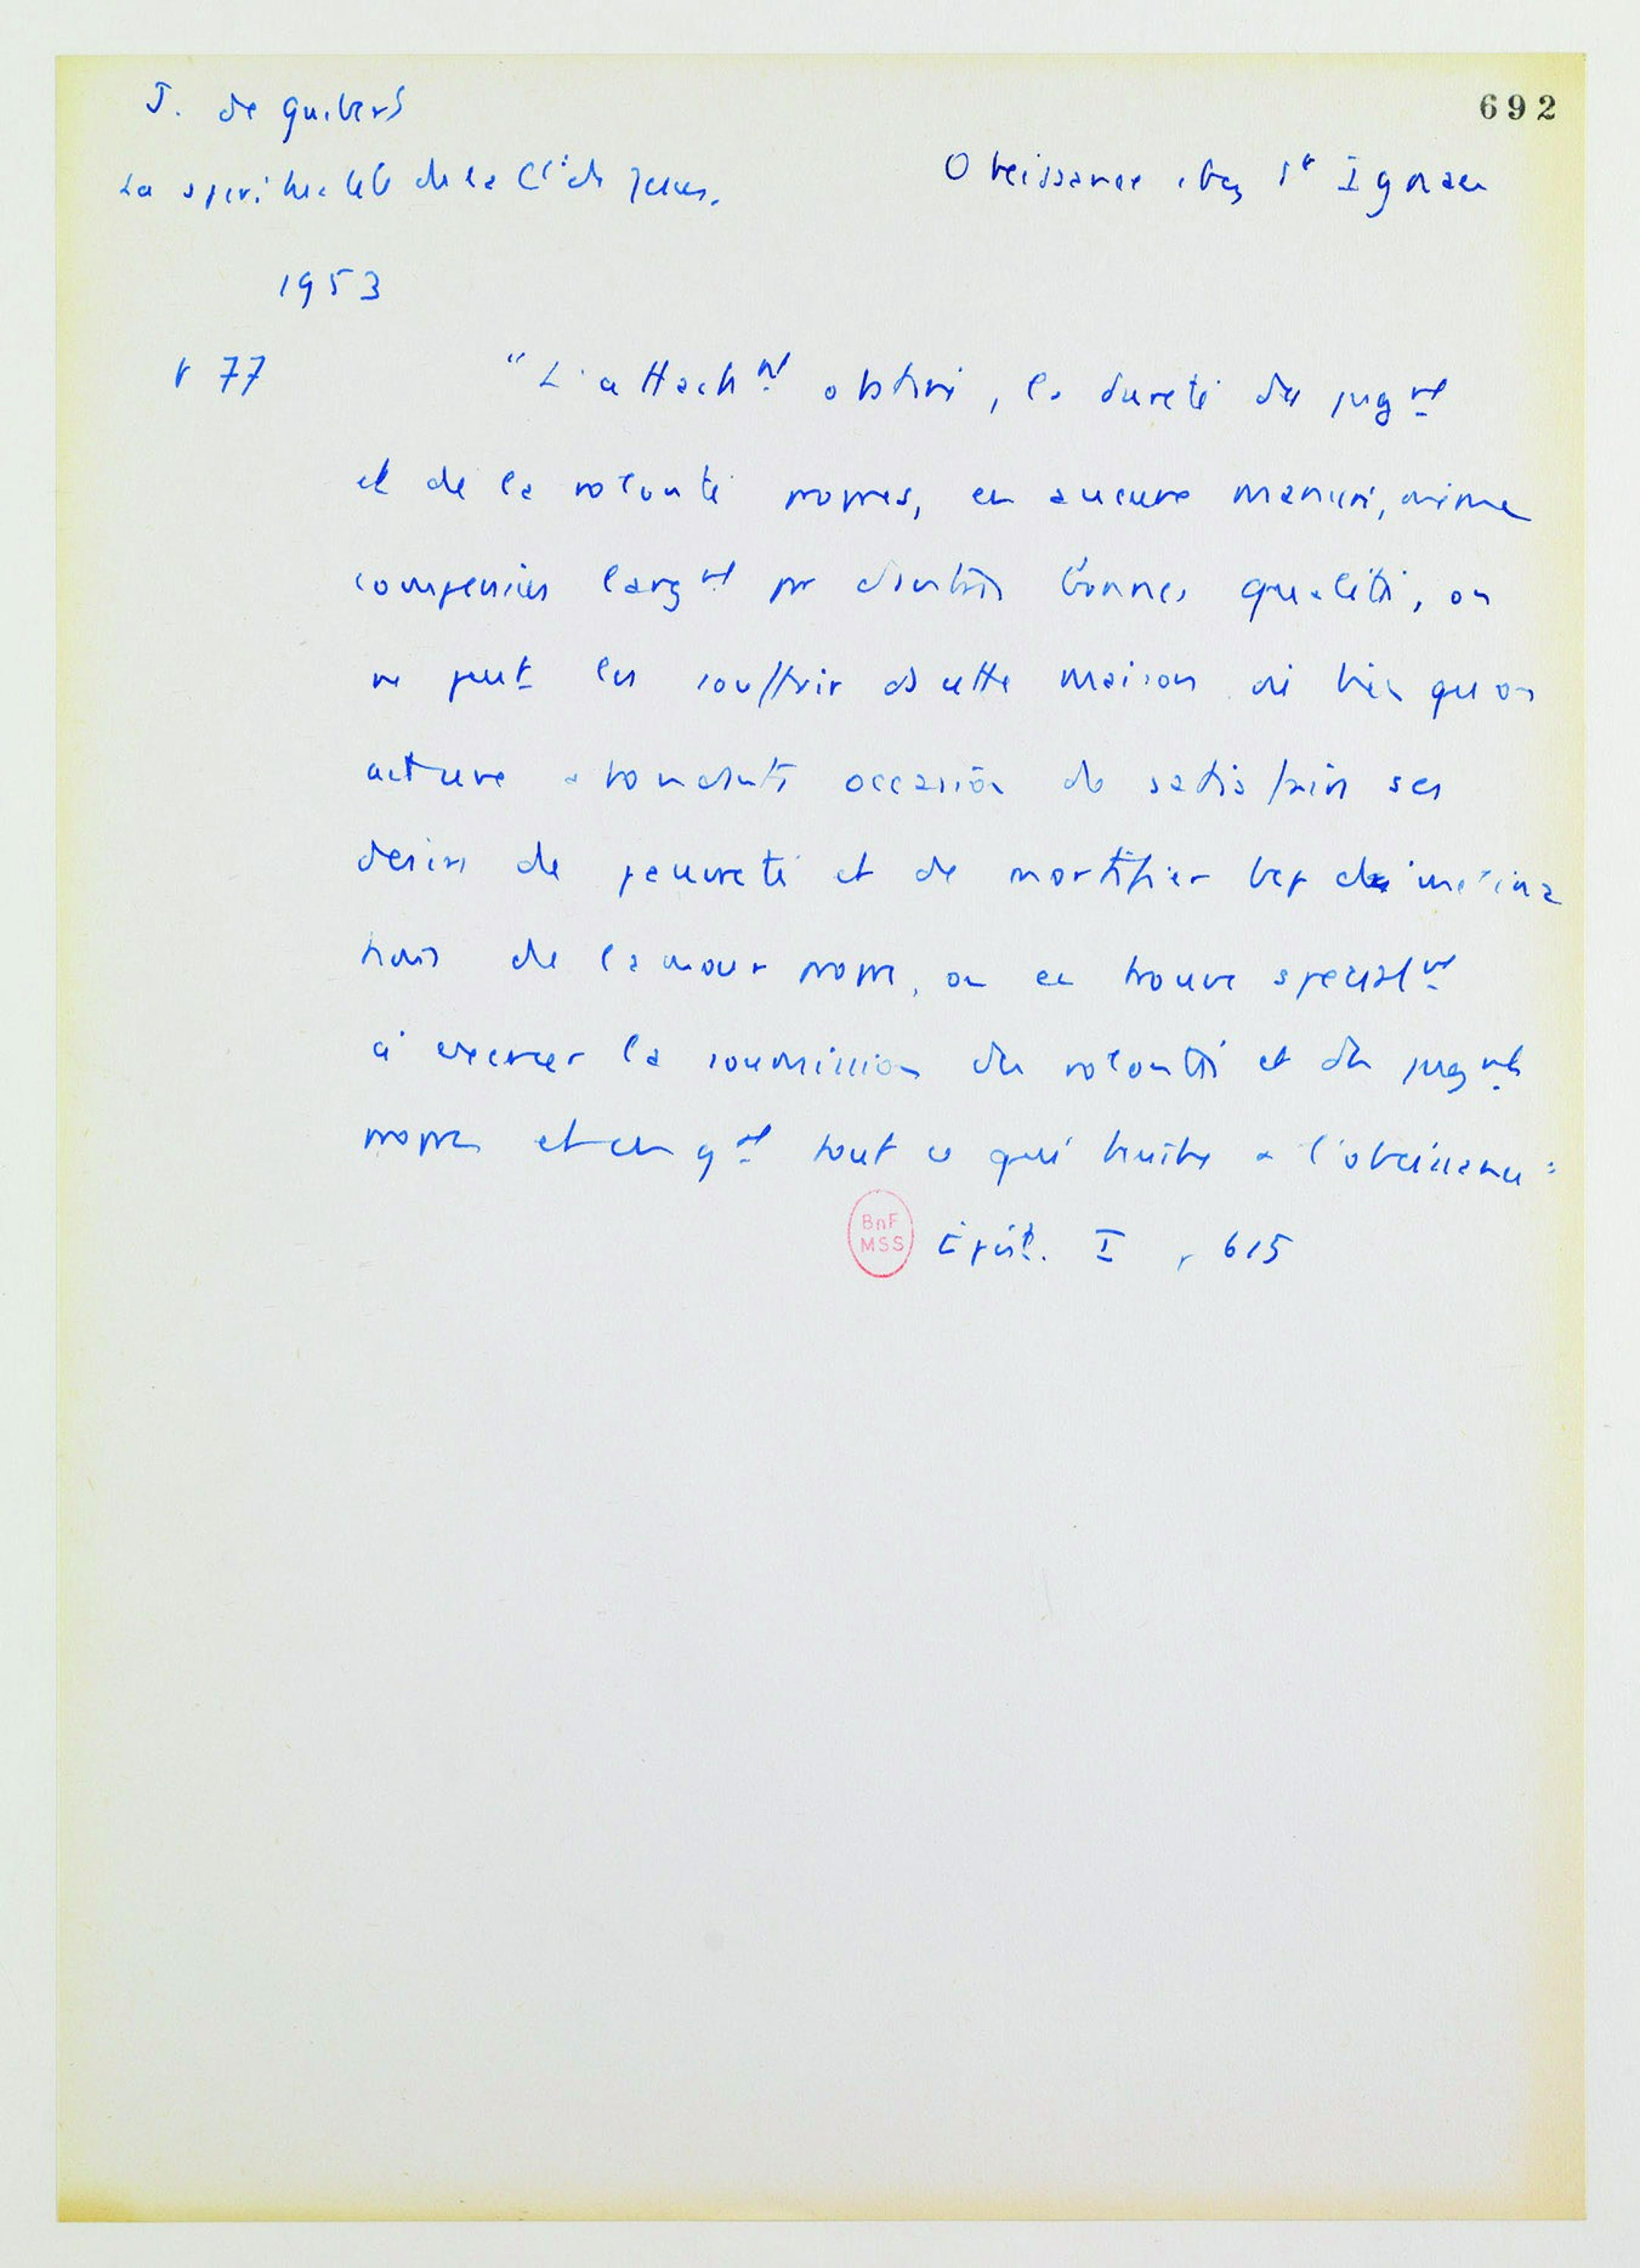 J. de Guibert
692
La spiritualité de la Cie de Jésus.
Obeissance chez St Ignace
1953
p 77
"L'attachnt obstiné, la dureté du jugnt
et de la volonté propres, en aucune manière, même
compensées largnt par d'autres bonnes qualités, on
ne peut les souffrir ds cette maison si bien qu'on
ait trouve abondante occasion de satisfaire ses
désirs de pauvreté et de mortifier bcp d'inclina
tions de l'amour propre, on en trouve specialnt
à exercer la soumission des volontés et des jugnts
propres et en gal tout ce qui touche a l'obeissance :
BnF
MSS
Epist. I p 615